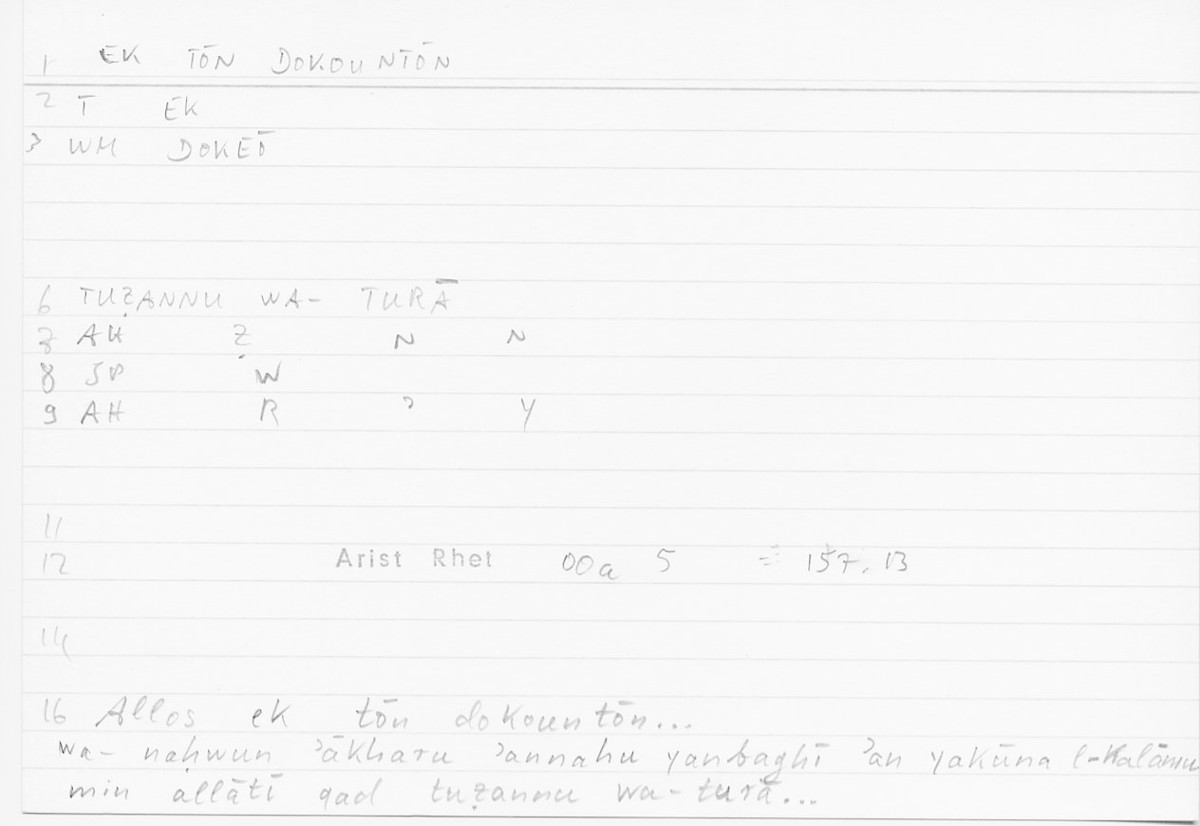 1 EK TŌN DOKOUNTŌN
2 T EK
3 WM DOKEŌ
6 TUẒANNU WA- TURĀ
7 AH Ẓ N N
8 SP W
9 AH R ʾ Y
11
12 Arist Rhet 00a 5 = 157.13
14
16 Allos ek tōn dokountōn...
wa- naḥwun ʾākharu ʾannahu yanbaghī ʾan yakūna l-kalāmu
min allātī qad tuẓannu wa-turā...